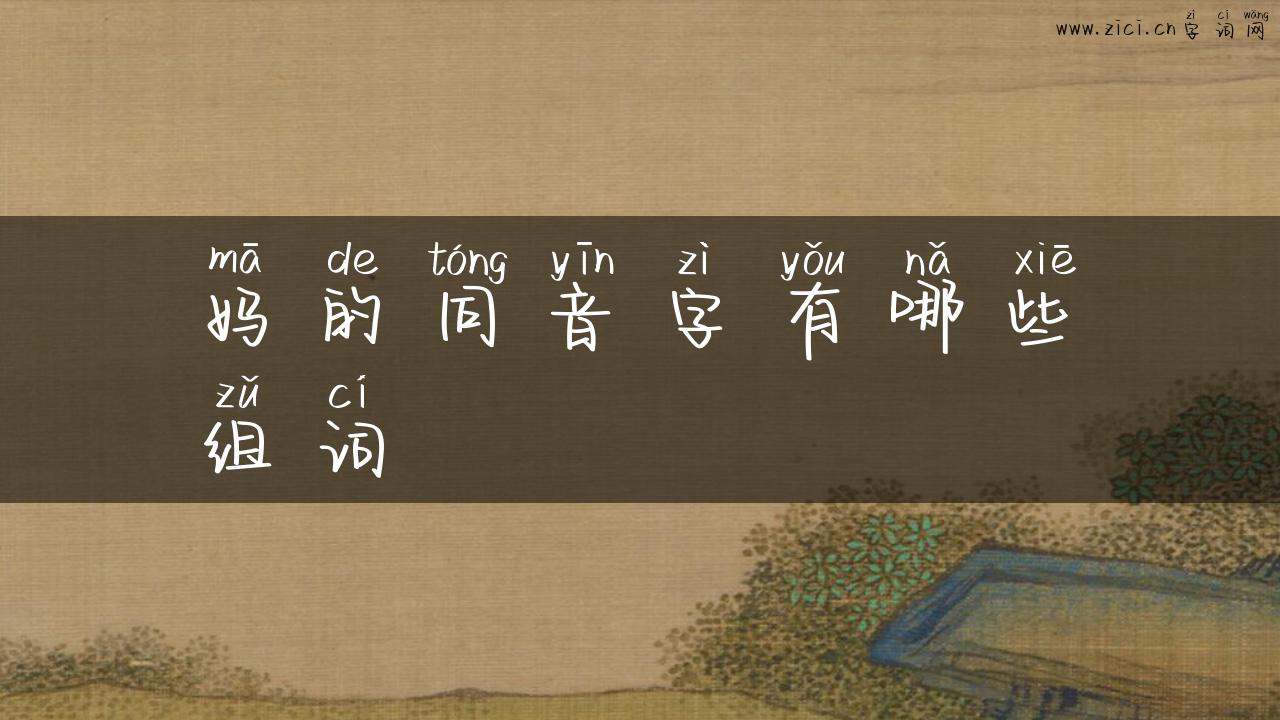 zì cí wǎng
www.zici.cn 字 词 网
mā de tóng yīn zì yǒu nǎ xiē
妈 的 同 音 字 有 哪 些
zǔ cí
组 词